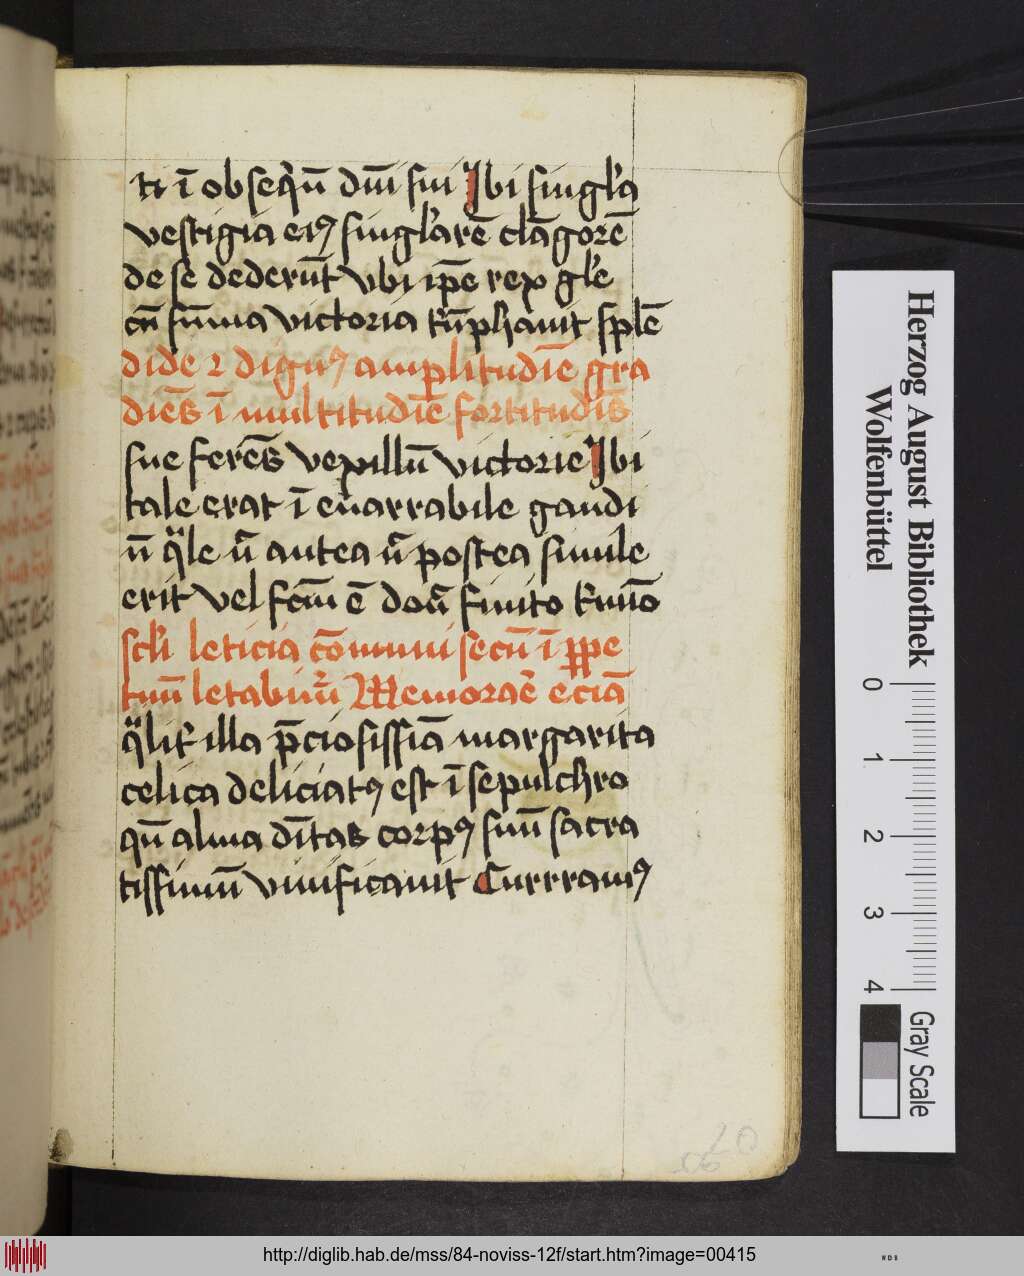 ti ī obseqͥū dn̄i sui Jbi singl'a
vestigia eiꝰ singl'arē clāgorē
de se dederūt vbi ip̄e rex gl'e
cū sūma victoria tͥūphauit splē
dide ⁊ dignꝰ amplitudīe gra
diēs ī multitudīe fortitudīs
sue ferēs vexillū victorie Jbi
tale erat ī enarrabile gaudi
ū qͣle nͦ antea nͦ postea simile
erit vel fcm̄ ē donͨ finito tͥmīo
scl'i leticia cōmuni secū ī ꝑpe
tuū letabimͬ Memoraē eciā
qͣlitͬ illa p̄ciosissīa margarita
celica deliciatꝰ est ī sepulchro
qn̄ alma dn̄tas corpꝰ suū sacra
tissimū viuificauit Currramꝰ
20
Herzog August Bibliothek
Wolfenbüttel
0 1 2 3 4
Gray Scale
http://diglib.hab.de/mss/84-noviss-12f/start.htm?image=00415